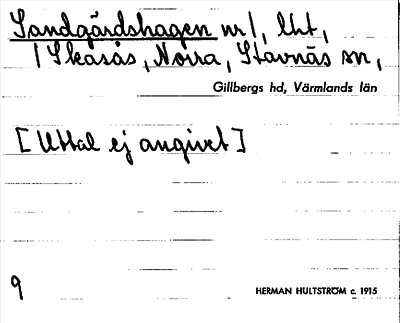 Sandgårdshagen nr 1, lht,
/ Skasås, Norra, Stavnäs sn,
Gillbergs hd, Värmlands län
[Uttal ej angivet]
9
HERMAN HULTSTRÖM c. 1915